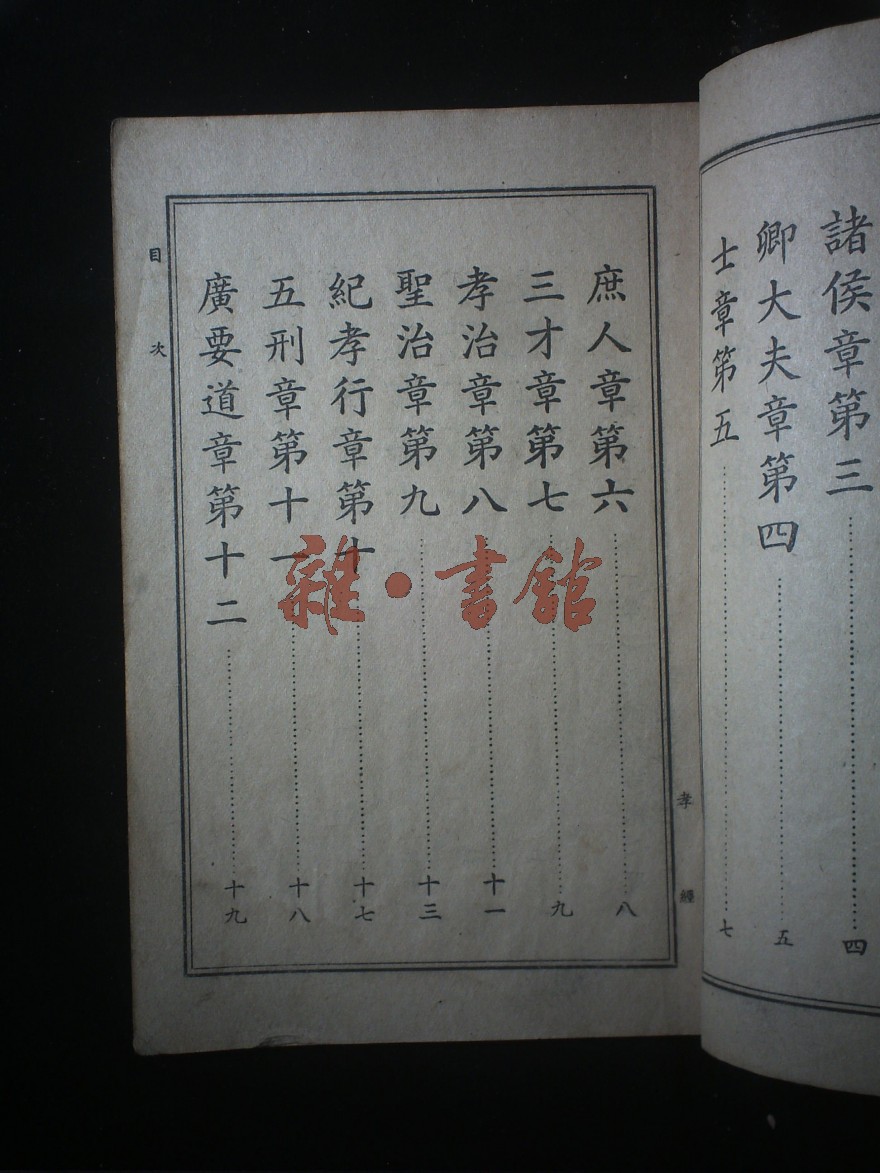 諸侯章第三……四
卿大夫章第四……五
士章第五……七
孝經
庶人章第六……八
三才章第七……九
孝治章第八……十一
聖治章第九……十三
紀孝行章第十……十七
五刑章第十一……十八
廣要道章第十二……十九
目次
雜·書館